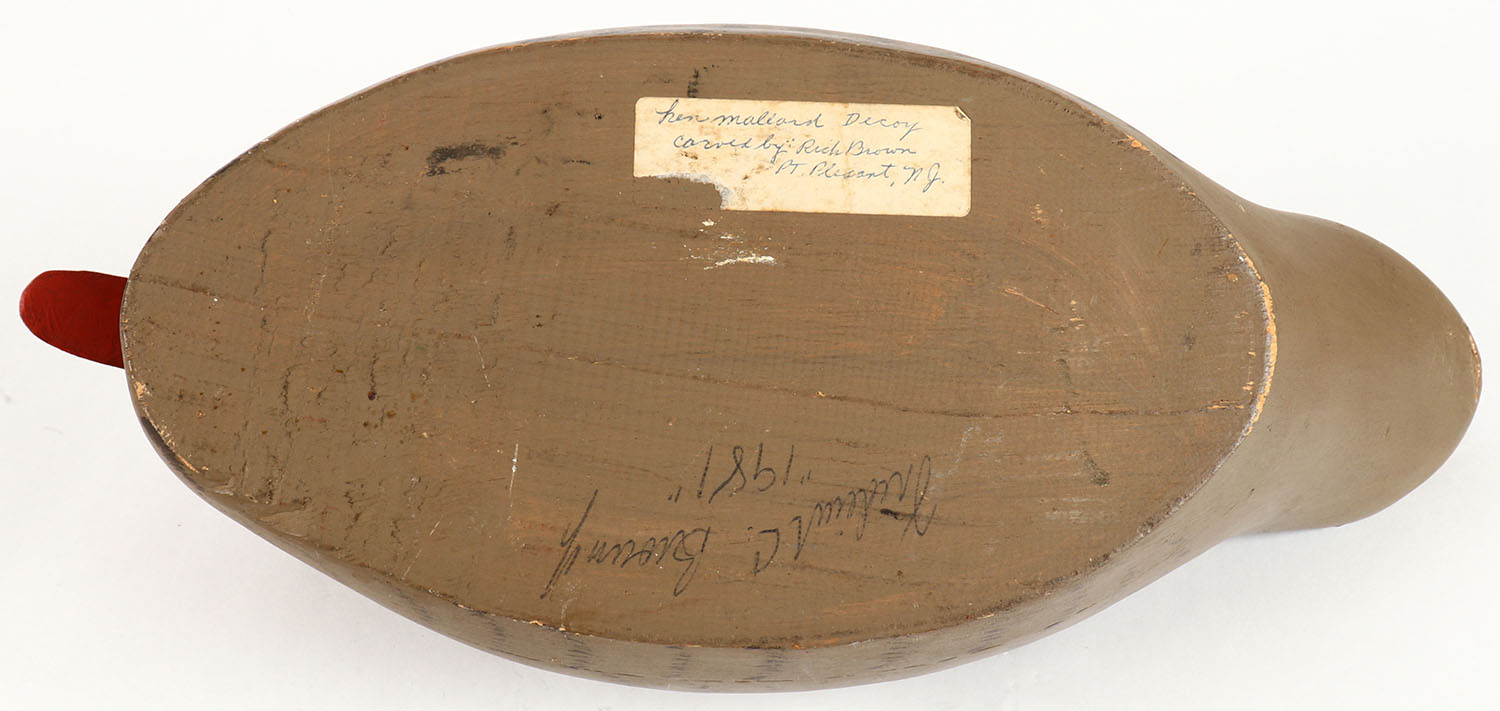 hen mallard Decoy
carved by: Rich Brown
PT. Plesant, N.J.
Frederick C. Brown
"1981"